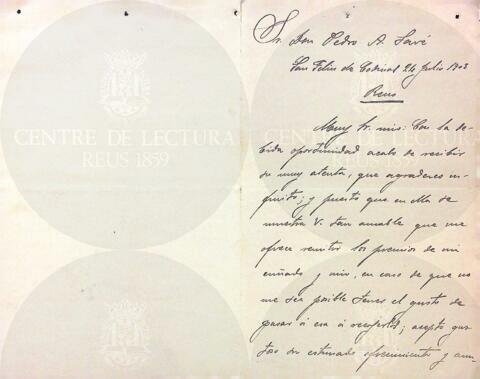 CENTRE DE LECTURA
REUS 1859
CENTRE DE LECTURA
REUS 1859
Sr. Don Pedro A. Savé
San Feliu de Codinas 24 Julio 1903
Reus
Muy Sr. mio: Con la de-
bida oportunidad acabo de recibir
su muy atenta, que agradezco in-
finito; y puesto que en ella se
muestra V. tan amable que me
ofrece remitir los premios de mi
cuñado y mio, en caso de que no
me sea posible tener el gusto de
pasar á esa á recojerlos; acepto gus-
toso su estimado ofrecimiento y